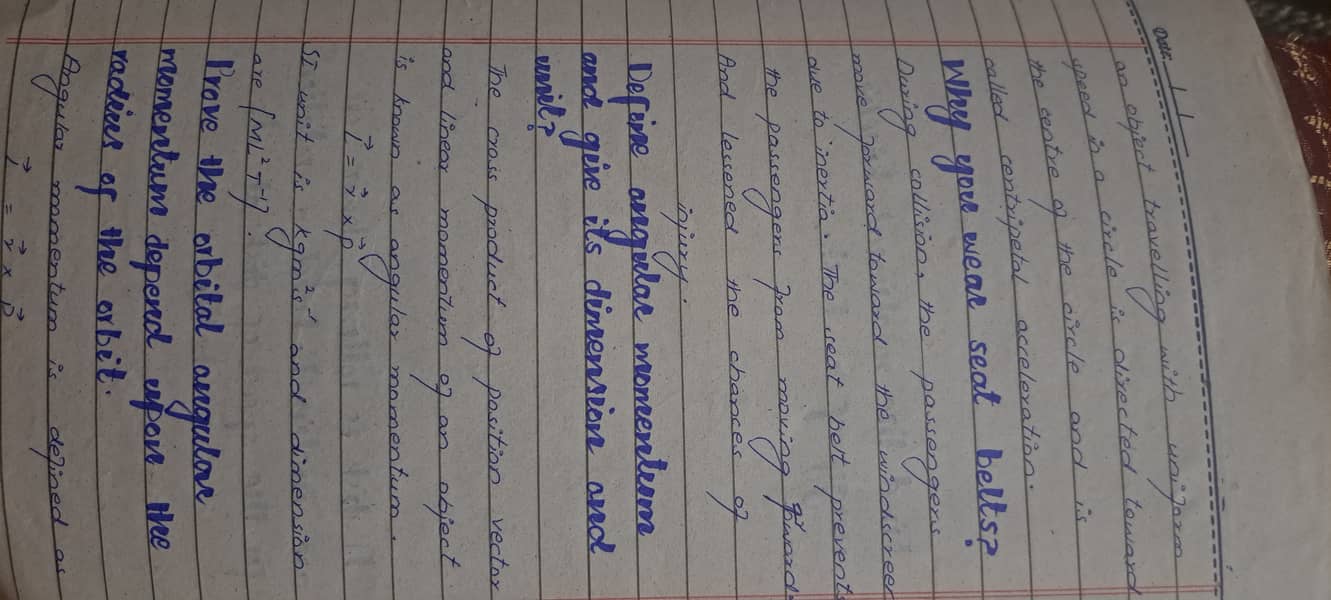 Date:
an object travelling with uniform
speed in a circle is directed toward
the centre of the circle and is
called centripetal acceleration.
Why you wear seat belts?
During collision, the passengers
move forward toward the windscreen
due to inertia. The seat belt prevents
the passengers from moving forward.
And lessened the chances of
injury.
Define angular momentum
and give its dimension and
unit?
The cross product of position vector
and linear momentum of an object
is known as angular momentum.
L⃗ = r⃗ × p⃗
SI unit is kgm²s⁻¹ and dimension
are [ML²T⁻¹].
Prove the orbital angular
momentum depend upon the
radius of the orbit.
Angular momentum is defined as
L⃗ = r⃗ × p⃗